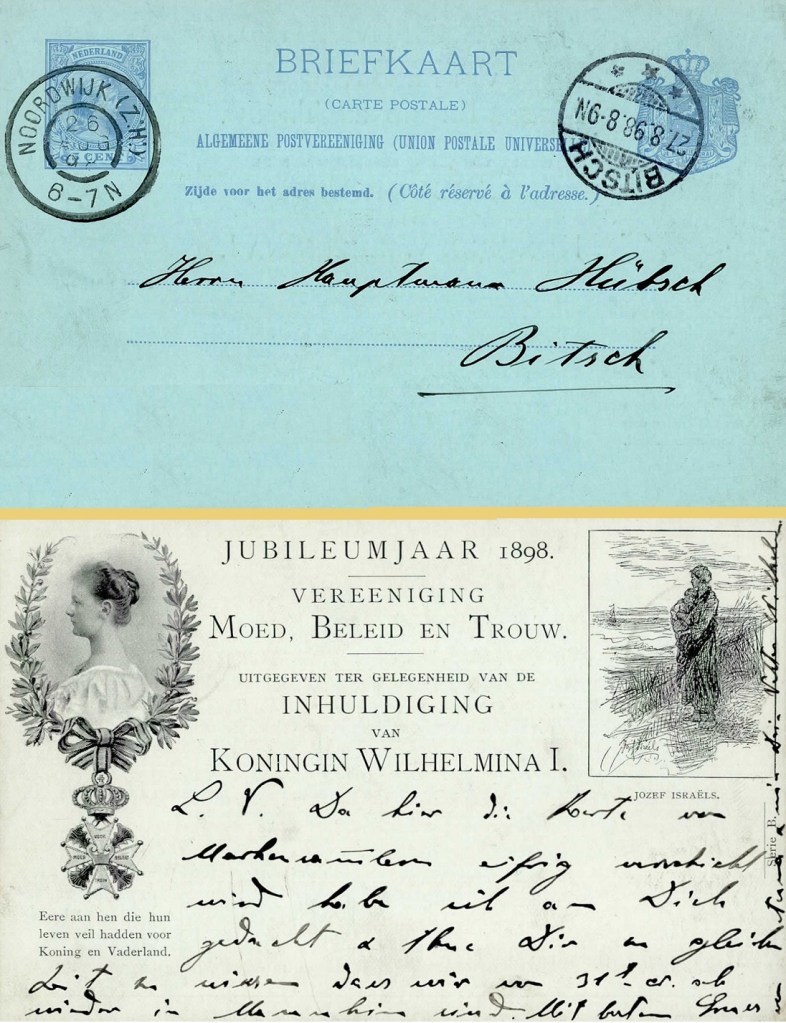 NEDERLAND
BRIEFKAART
(CARTE POSTALE)
ALGEMEENE POSTVEREENIGING (UNION POSTALE UNIVERSE
Zijde voor het adres bestemd. (Côté réservé à l'adresse.)
NOORDWIJK (Z.H.)
26
6-7N
5 CENT
27.8.98.8-9N
BITSCH
Herrn Hauptmann Hübsch
Bitsch
JUBILEUMJAAR 1898.
VEREENIGING
MOED, BELEID EN TROUW.
UITGEGEVEN TER GELEGENHEID VAN DE
INHULDIGING
VAN
KONINGIN WILHELMINA I.
JOZEF ISRAËLS.
Serie B.
Eere aan hen die hun
leven veil hadden voor
Koning en Vaderland.
L. V. Da hier die Karte von
Markensammlern eifrig verschickt
wird habe ich an Dich
gedacht & thue Dir zu gleicher
Zeit zu wissen dass wir am 31t. cr. ab
wieder in Mannheim sind. Mit besten Gruss